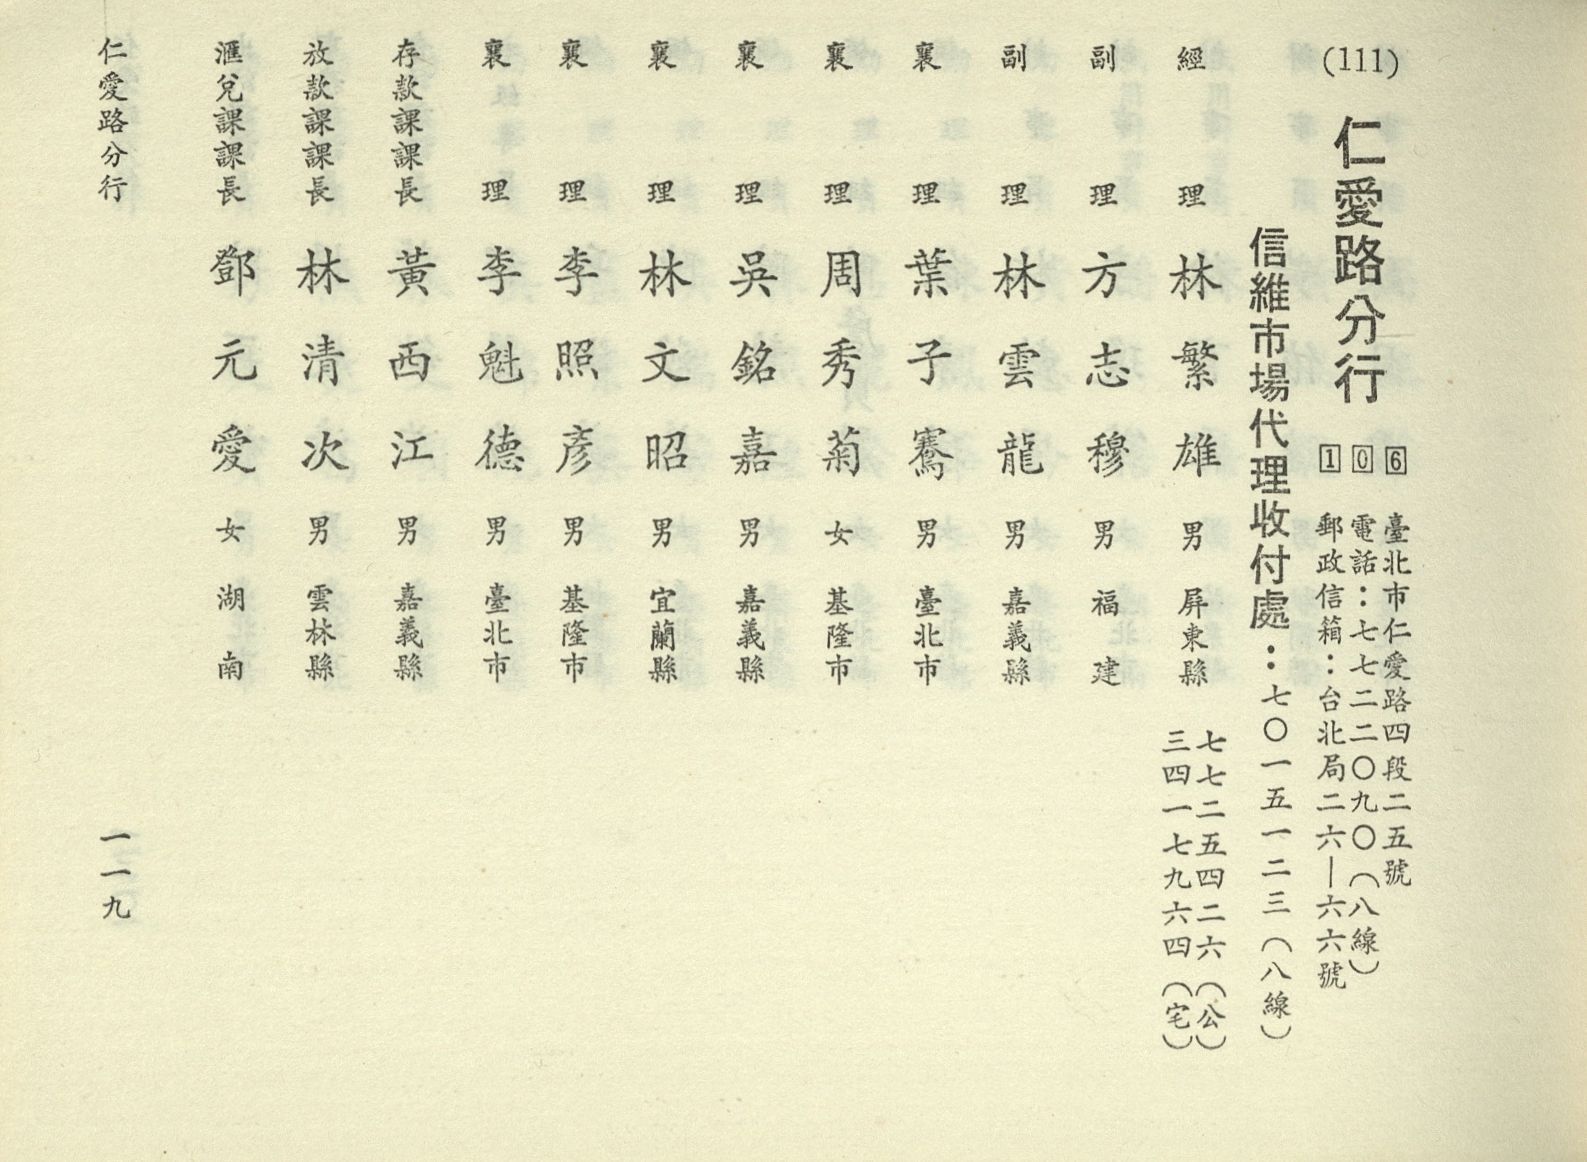 (111)
仁愛路分行
106
臺北市仁愛路四段二五號
電話：七七二二〇九〇（八線）
郵政信箱：台北局二六—六六號
信維市場代理收付處：七〇一五一二三（八線）
經理 林繁雄 男 屏東縣 七七二五四二六（公）
三四一七九六四（宅）
副理 方志穆 男 福建
副理 林雲龍 男 嘉義縣
襄理 葉子騫 男 臺北市
襄理 周秀菊 女 基隆市
襄理 吳銘嘉 男 嘉義縣
襄理 林文昭 男 宜蘭縣
襄理 李照彥 男 基隆市
襄理 李魁德 男 臺北市
存款課課長 黃西江 男 嘉義縣
放款課課長 林清次 男 雲林縣
滙兌課課長 鄧元愛 女 湖南
仁愛路分行
一一九